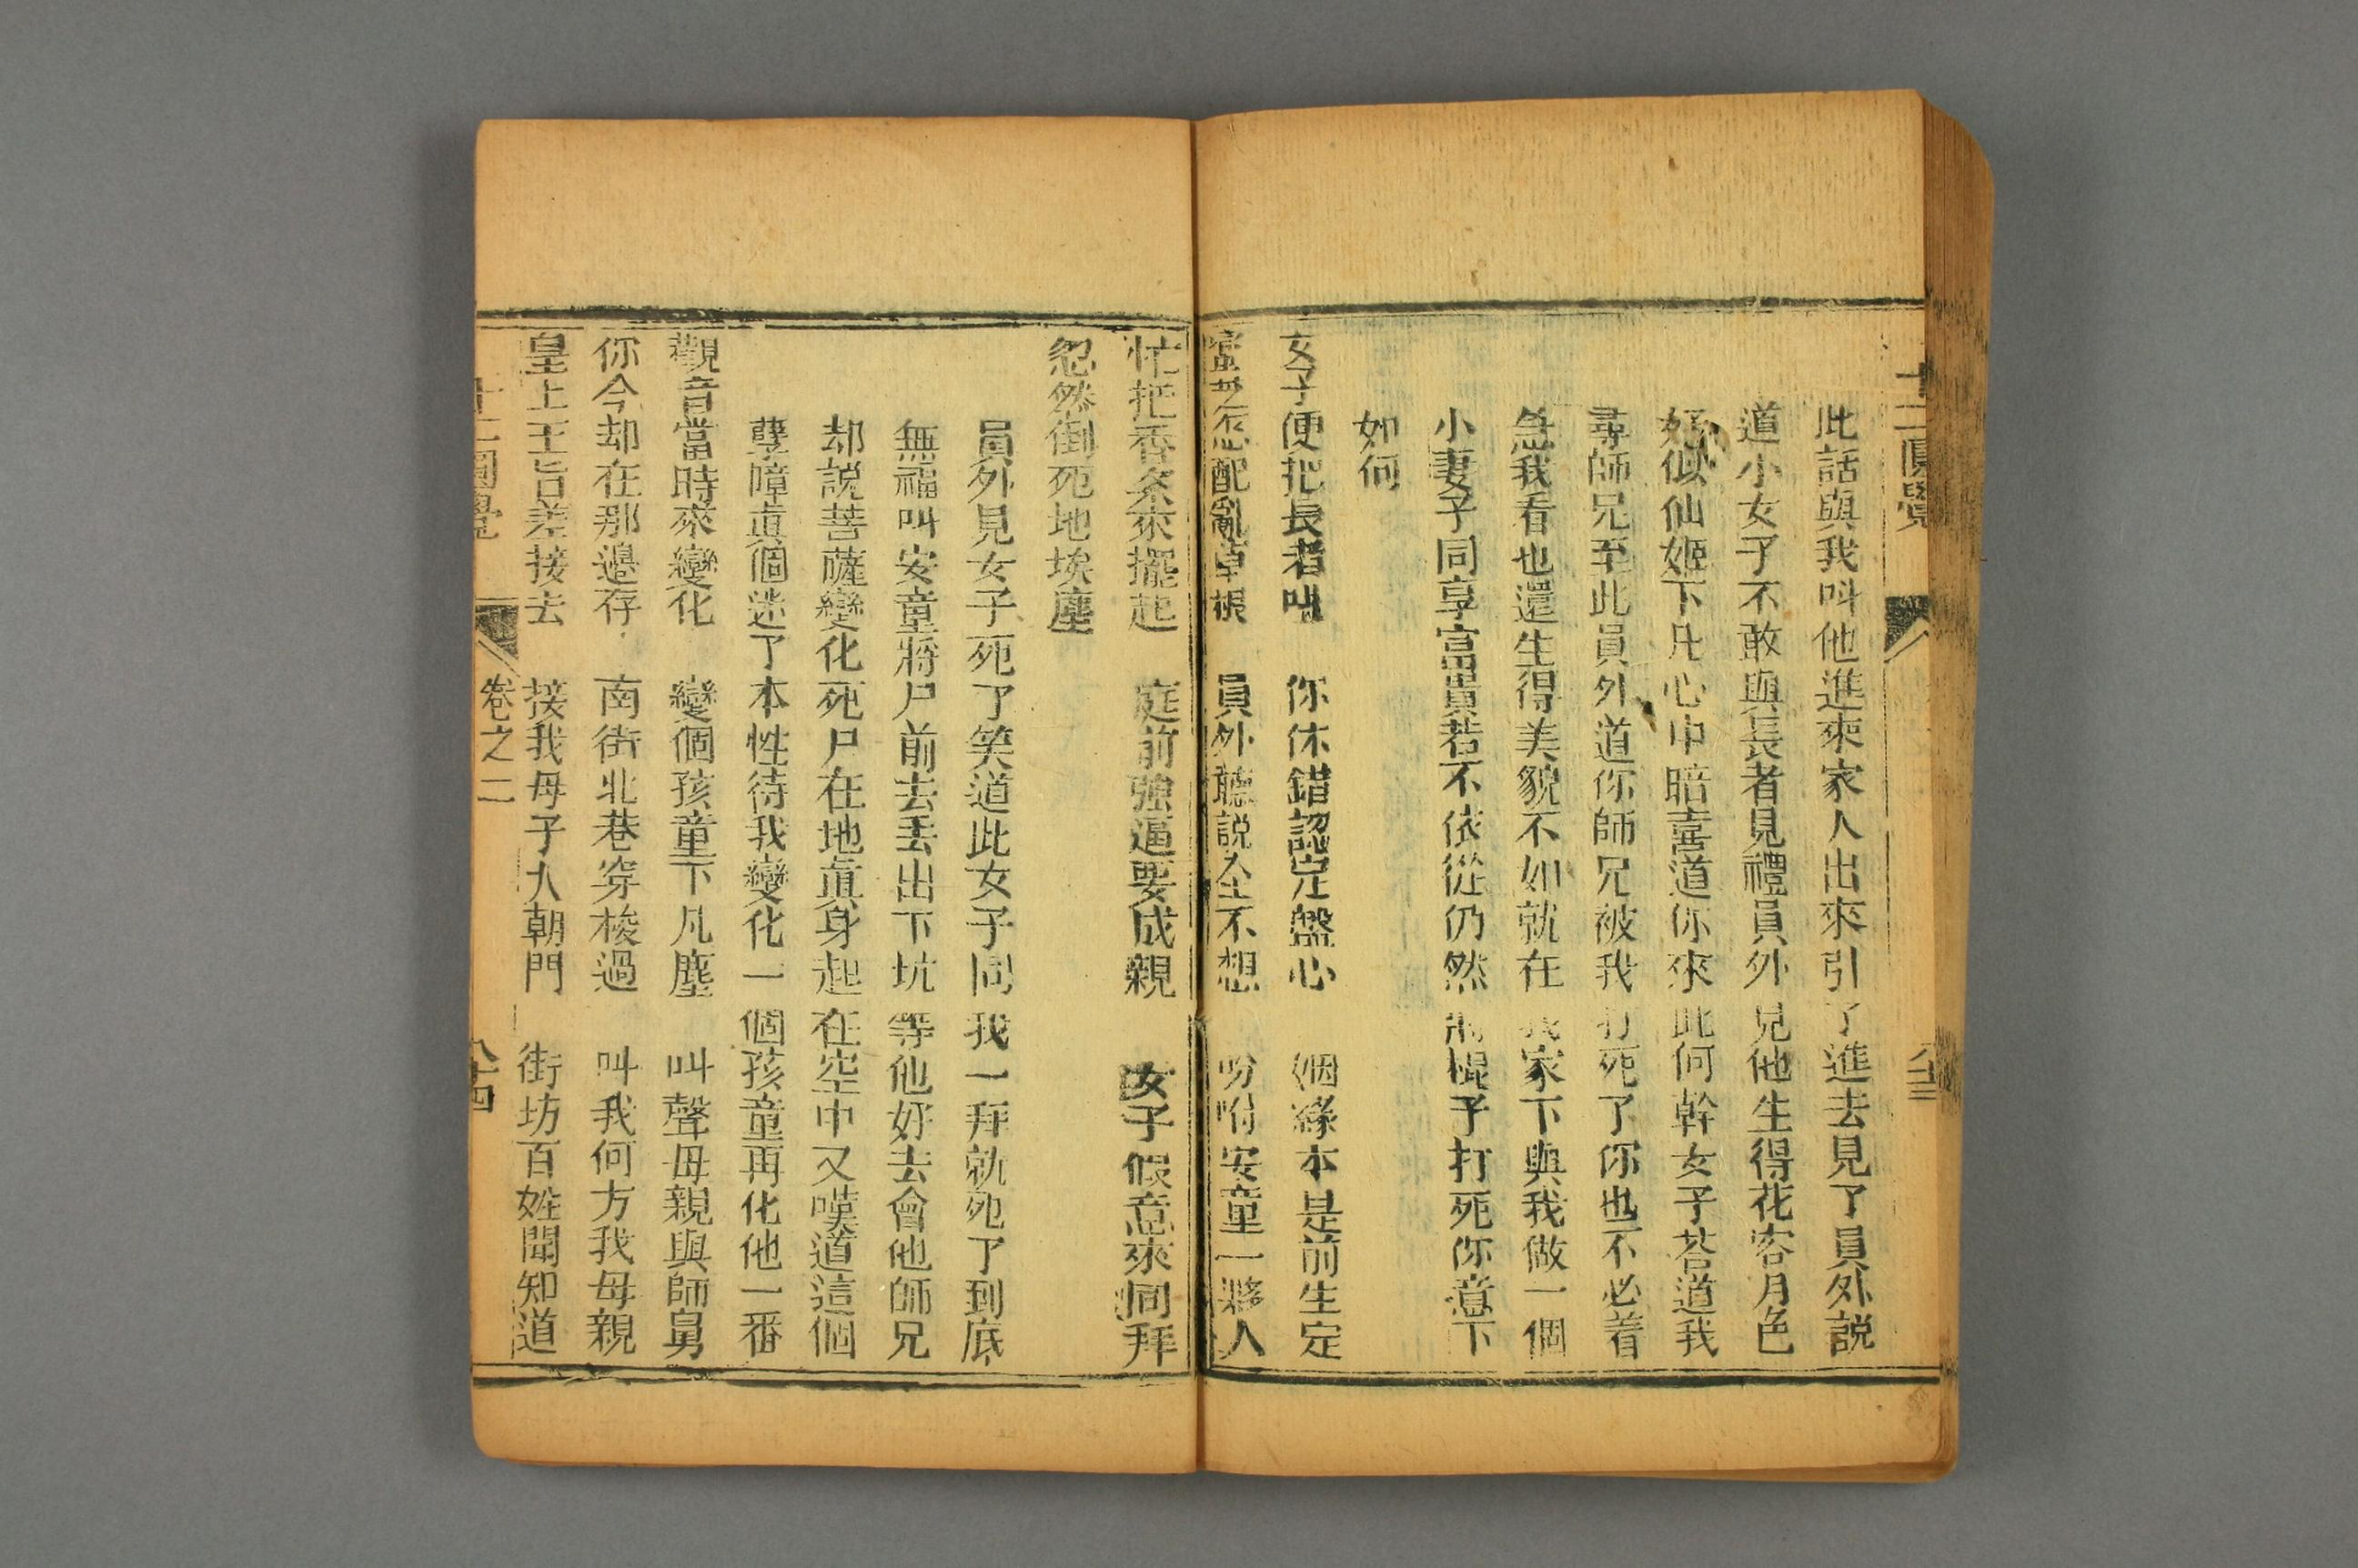 十二圓覺
此話與我叫他進來家人出來引了進去見了員外説
道小女子不敢與長者見禮員外見他生得花容月色
好似仙姬下凡心中暗喜道你來此何幹女子荅道我
尋師兄至此員外道你師兄被我打死了你也不必着
急我看也還生得美貌不如就在我家下與我做一個
小妻子同享富貴若不依從仍然棍子打死你意下
如何
女子便把長者叫 你休錯認定盤心 姻緣本是前生定
配亂草根 員外聽説全不想 吩咐安童一夥人
忙把香条來擺起 庭前強逼要成親 女子假意來同拜
忽然倒死地埃塵
員外見女子死了笑道此女子同我一拜就死了到底
無福叫安童將尸前去丢出下坑等他好去會他師兄
却説菩薩變化死尸在地真身起在空中又嘆道這個
孽障真個迷了本性待我變化一個孩童再化他一番
觀音當時來變化 變個孩童下凡塵 叫聲母親與師舅
你今却在那邉存 南街北巷穿梭過 叫我何方我母親
皇上王旨差接去 接我母子人朝門 街坊百姓聞知道
十二圓覺 卷之二 八十四